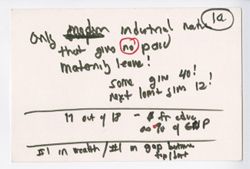 1a
Only modern industrial nation
that gives no paid
maternity leave!
Some give 40!
next lowest gives 12!
17 out of 18 - $ for educ
as % of GNP
#1 in wealth / #1 in gap between
top/bott